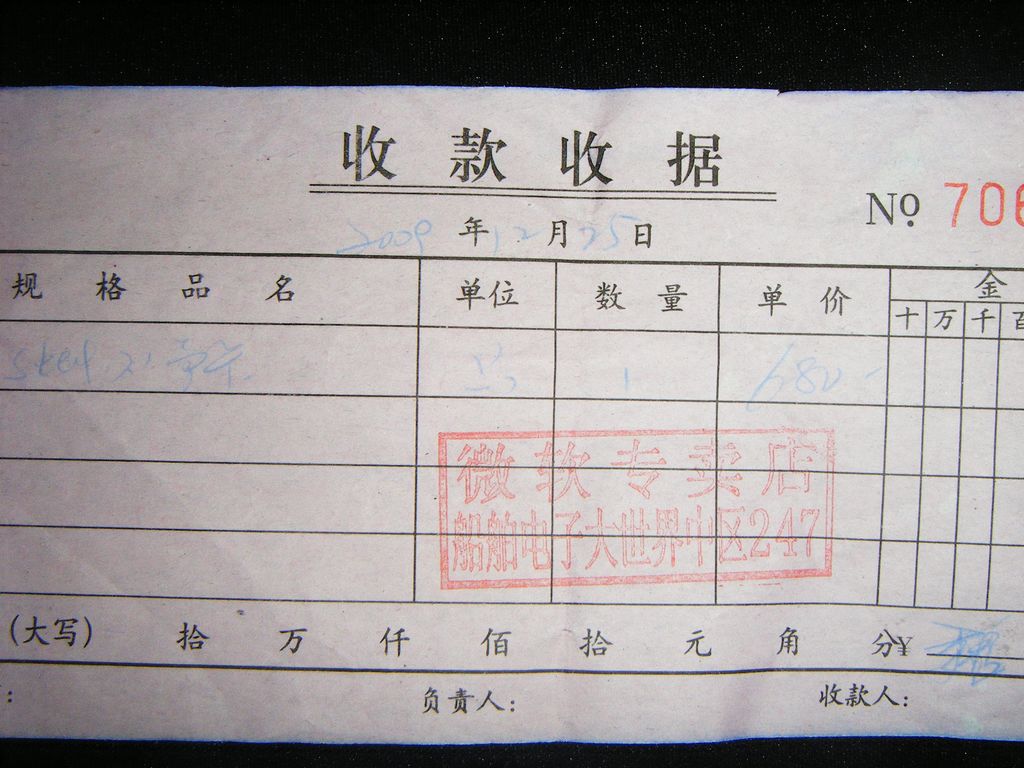 收款收据
No 706
2009年12月25日
规格品名 单位 数量 单价 金
十万千百
1 680-
微软专卖店
船舶电子大世界中区247
(大写) 拾 万 仟 佰 拾 元 角 分¥
: 负责人: 收款人: